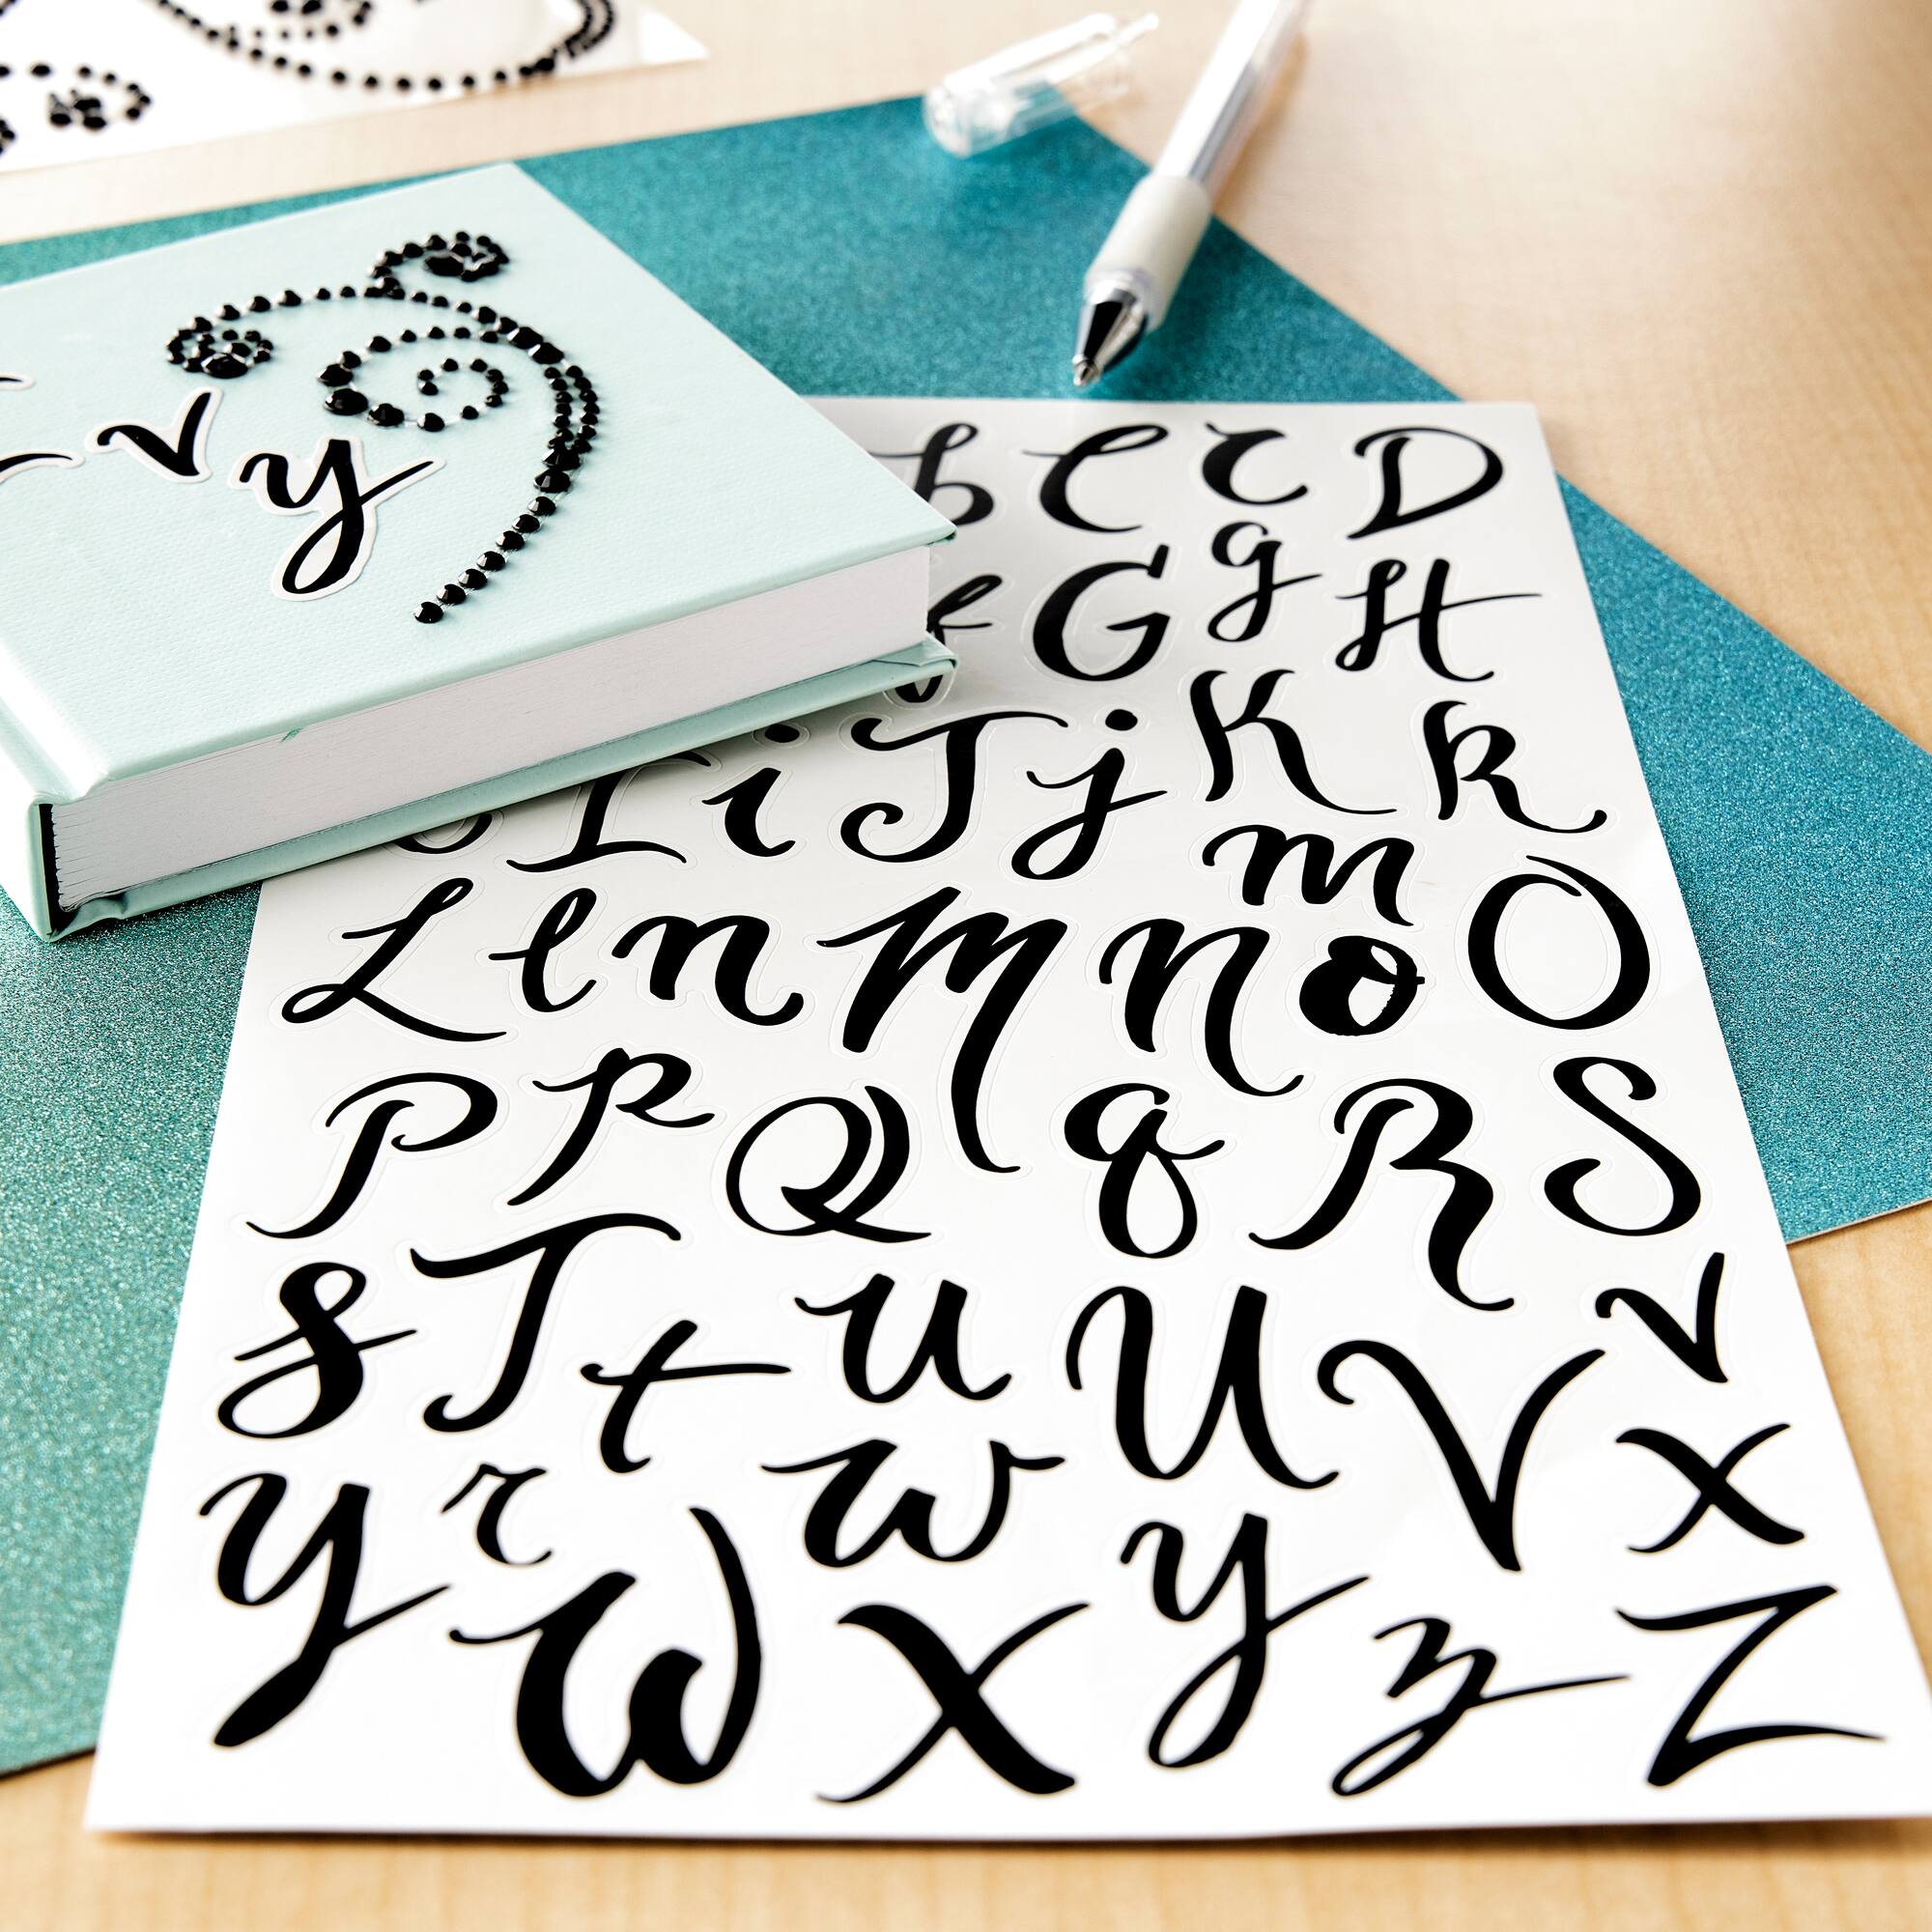 v y
b C c D
f G g H
I i J j K k
L l n M N m o O
P p Q q R S
s T t u U V v
y r W w X Y z Z x